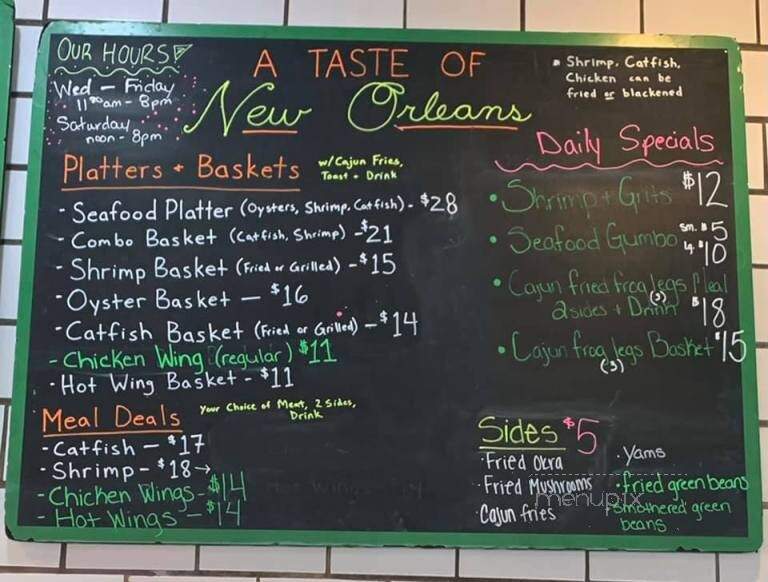 OUR HOURS
Wed - Friday
11:00am - 8pm
Saturday
noon - 8pm
A TASTE OF
New Orleans
Shrimp, Catfish,
Chicken can be
fried or blackened
Platters + Baskets
w/Cajun Fries,
Toast + Drink
- Seafood Platter (Oysters, Shrimp, Catfish) - $28
- Combo Basket (Catfish, Shrimp) - $21
- Shrimp Basket (Fried or Grilled) - $15
- Oyster Basket - $16
- Catfish Basket (Fried or Grilled) - $14
- Chicken Wing (regular) $11
- Hot Wing Basket - $11
Meal Deals
Your Choice of Meat, 2 Sides,
Drink
- Catfish - $17
- Shrimp - $18→
- Chicken Wings - $14
- Hot Wings - $14
Daily Specials
• Shrimp + Grits $12
• Seafood Gumbo sm. $5
Lg. $10
• Cajun fried frog legs Meal
(3)
2 sides + Drink $18
• Cajun frog legs Basket $15
(3)
Sides $5
· Fried Okra
· Fried Mushrooms
· Cajun fries
· Yams
· fried green beans
· Smothered green
beans
menupix